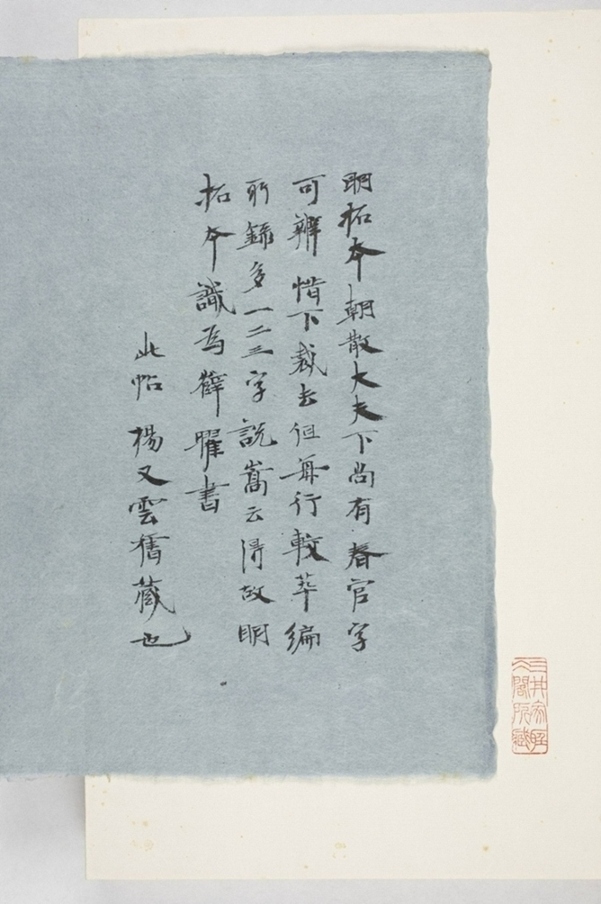 明拓本朝散大夫下尚有春官字
可辨惜下裁去但每行較萃編
所錄多一二三字說嵩云得故明
拓本識為薛曜書
此帖楊又雲舊藏也